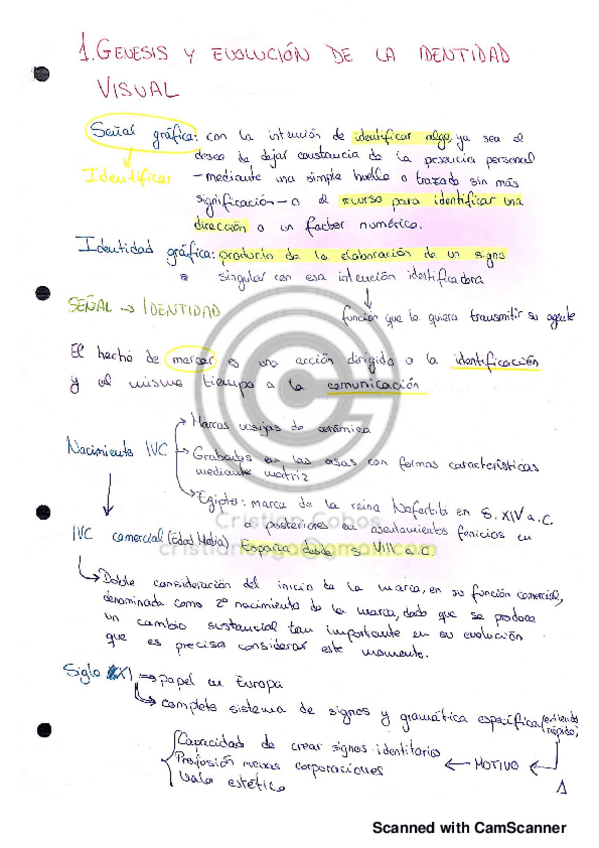 1. GENESIS Y EVOLUCIÓN DE LA IDENTIDAD
VISUAL
Señal gráfica: con la intención de identificar algo, ya sea el
deseo de dejar constancia de la presencia personal
Identificar
-mediante una simple huella o trazado sin más
significación- o el recurso para identificar una
dirección o un factor numérico.
Identidad gráfica: producto de la elaboración de un signo
singular con esa intención identificadora
función que le quiera transmitir su agente
SEÑAL → IDENTIDAD
El hecho de marcar es una acción dirigida a la identificación
y al mismo tiempo a la comunicación
Nacimiento IVC
→ Marcas vasijas de cerámica
→ Grabados en las asas con formas características
mediante matriz
→ Egipto: marca de la reina Nefertiti en S. XIV a.C.
o posteriores en asentamientos fenicios en
España desde s. VIII a.C.
Cristian Cobos
IVC comercial (Edad Media)
→ Doble consideración del inicio de la marca, en su función comercial,
denominada como 2º nacimiento de la marca, dado que se produce
un cambio sustancial tan importante en su evolución
que es preciso considerar este momento.
Siglo XI → papel en Europa
→ completo sistema de signos y gramática específica
Capacidad de crear signos identitarios
Profusión nuevas corporaciones
Valor estético
← MOTIVO ←
1
Scanned with CamScanner